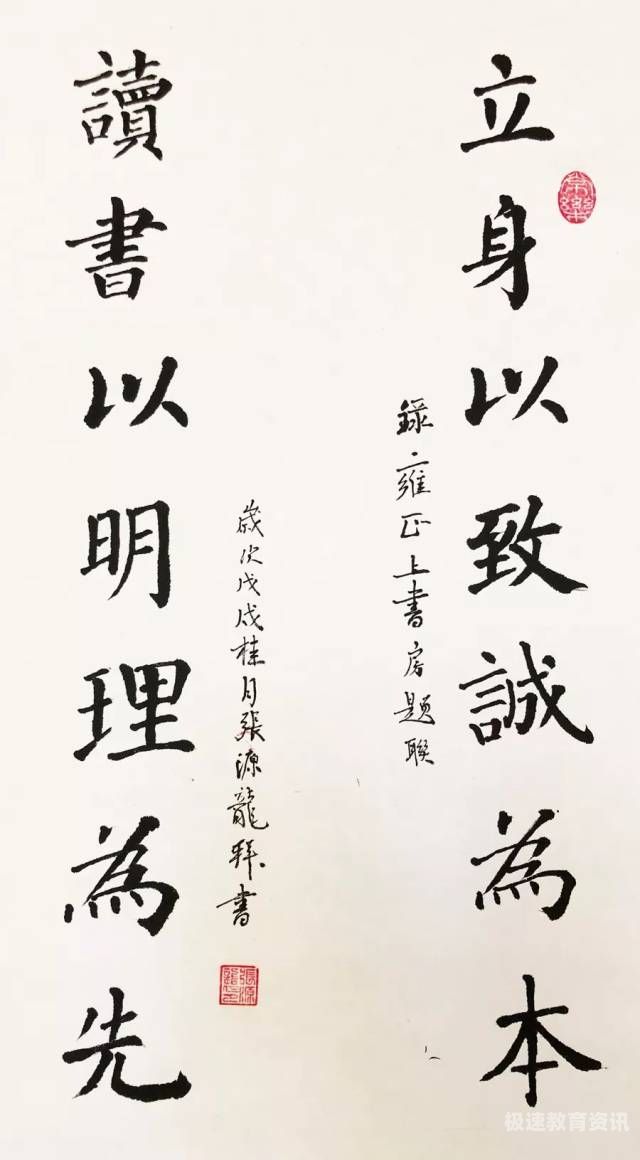 立身以致誠為本
錄雍正上書房題聯
讀書以明理為先
歲次戊戌桂月張源龍拜書
極速教育资讯